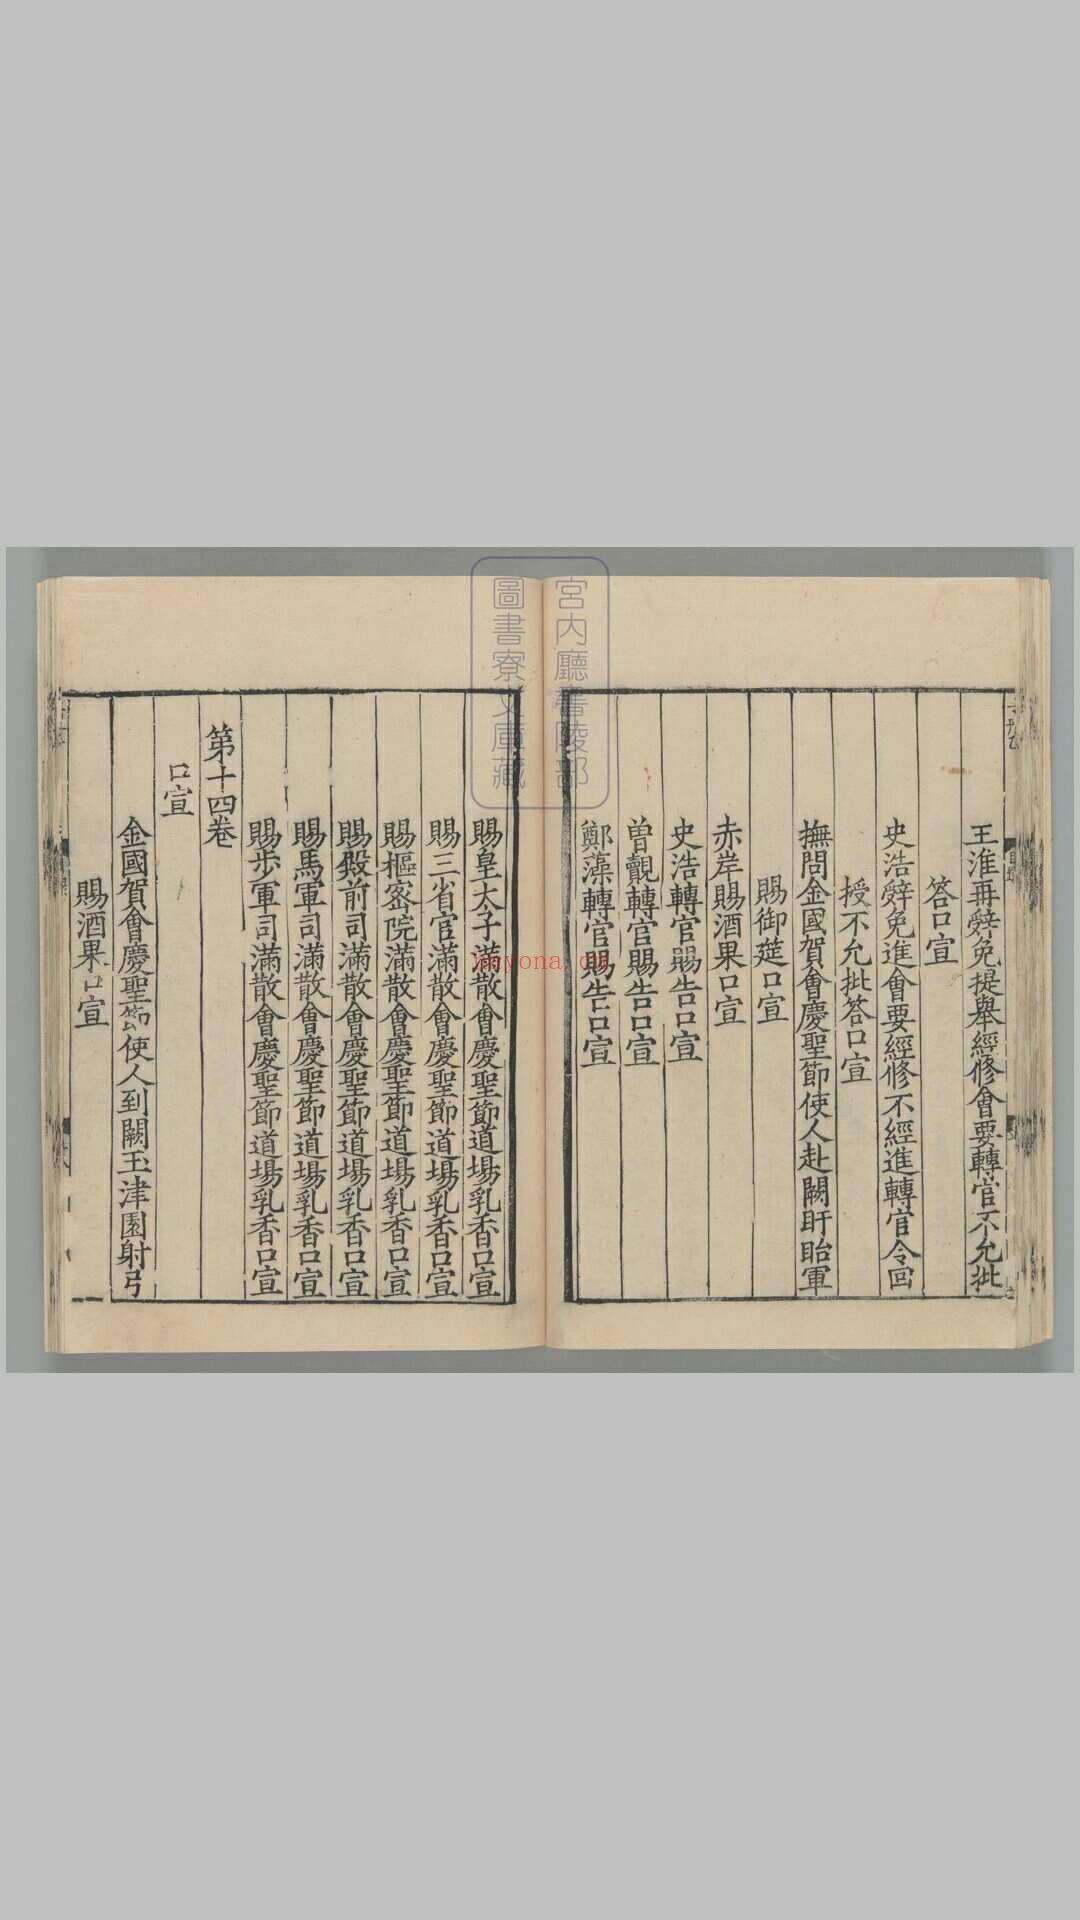 王淮再辭免提舉經修會要轉官不允批
答口宣
史浩辭免進會要經修不經進轉官令回
授不允批答口宣
撫問金國賀會慶聖節使人赴闕盱眙軍
賜御筵口宣
赤岸賜酒果口宣
史浩轉官賜告口宣
曾覿轉官賜告口宣
鄭藻轉官賜告口宣
賜皇太子滿散會慶聖節道場乳香口宣
賜三省官滿散會慶聖節道場乳香口宣
賜樞密院滿散會慶聖節道場乳香口宣
賜殿前司滿散會慶聖節道場乳香口宣
賜馬軍司滿散會慶聖節道場乳香口宣
賜步軍司滿散會慶聖節道場乳香口宣
第十四卷
口宣
金國賀會慶聖節使人到闕玉津園射弓
賜酒果口宣
宮内廳書陵部
圖書寮文庫藏